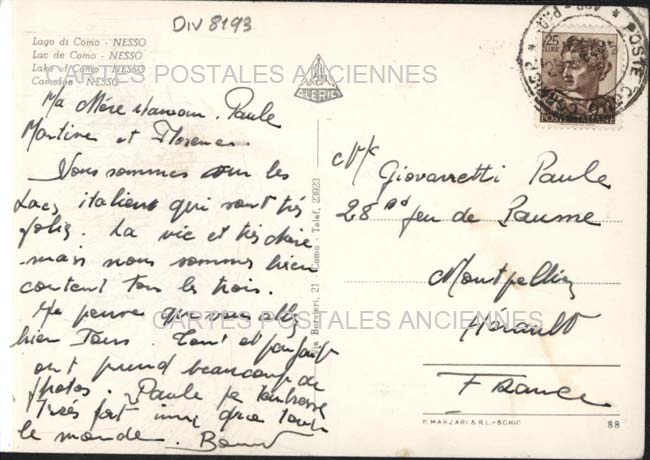 DIV 8193
Lago di Como - NESSO
Lac de Como - NESSO
Lake of Como - NESSO
Comosee - NESSO
CARTES POSTALES ANCIENNES
Ma Mère Paule
Martine et Florence
Nous sommes sur les
Lacs italiens qui sont très
jolis. La vie est très chère
mais nous sommes bien
content tous les trois.
Je pense que vous allez
bien Tous. Tout est parfait
ont prend beaucoup de
photos. Paule je t'embrasse
très fort ainsi que tout
le monde.
GLERIC
Via Borsieri, 21 Como - Telef. 23923
25
LIRE
POSTE ITALIANE
POSTE
Giovarretti Paule
28 Bd jeu de Paume
Montpellier
Herault
France
CARTES POSTALES ANCIENNES
F. MANZARI S.R.L. - SCHIO
88